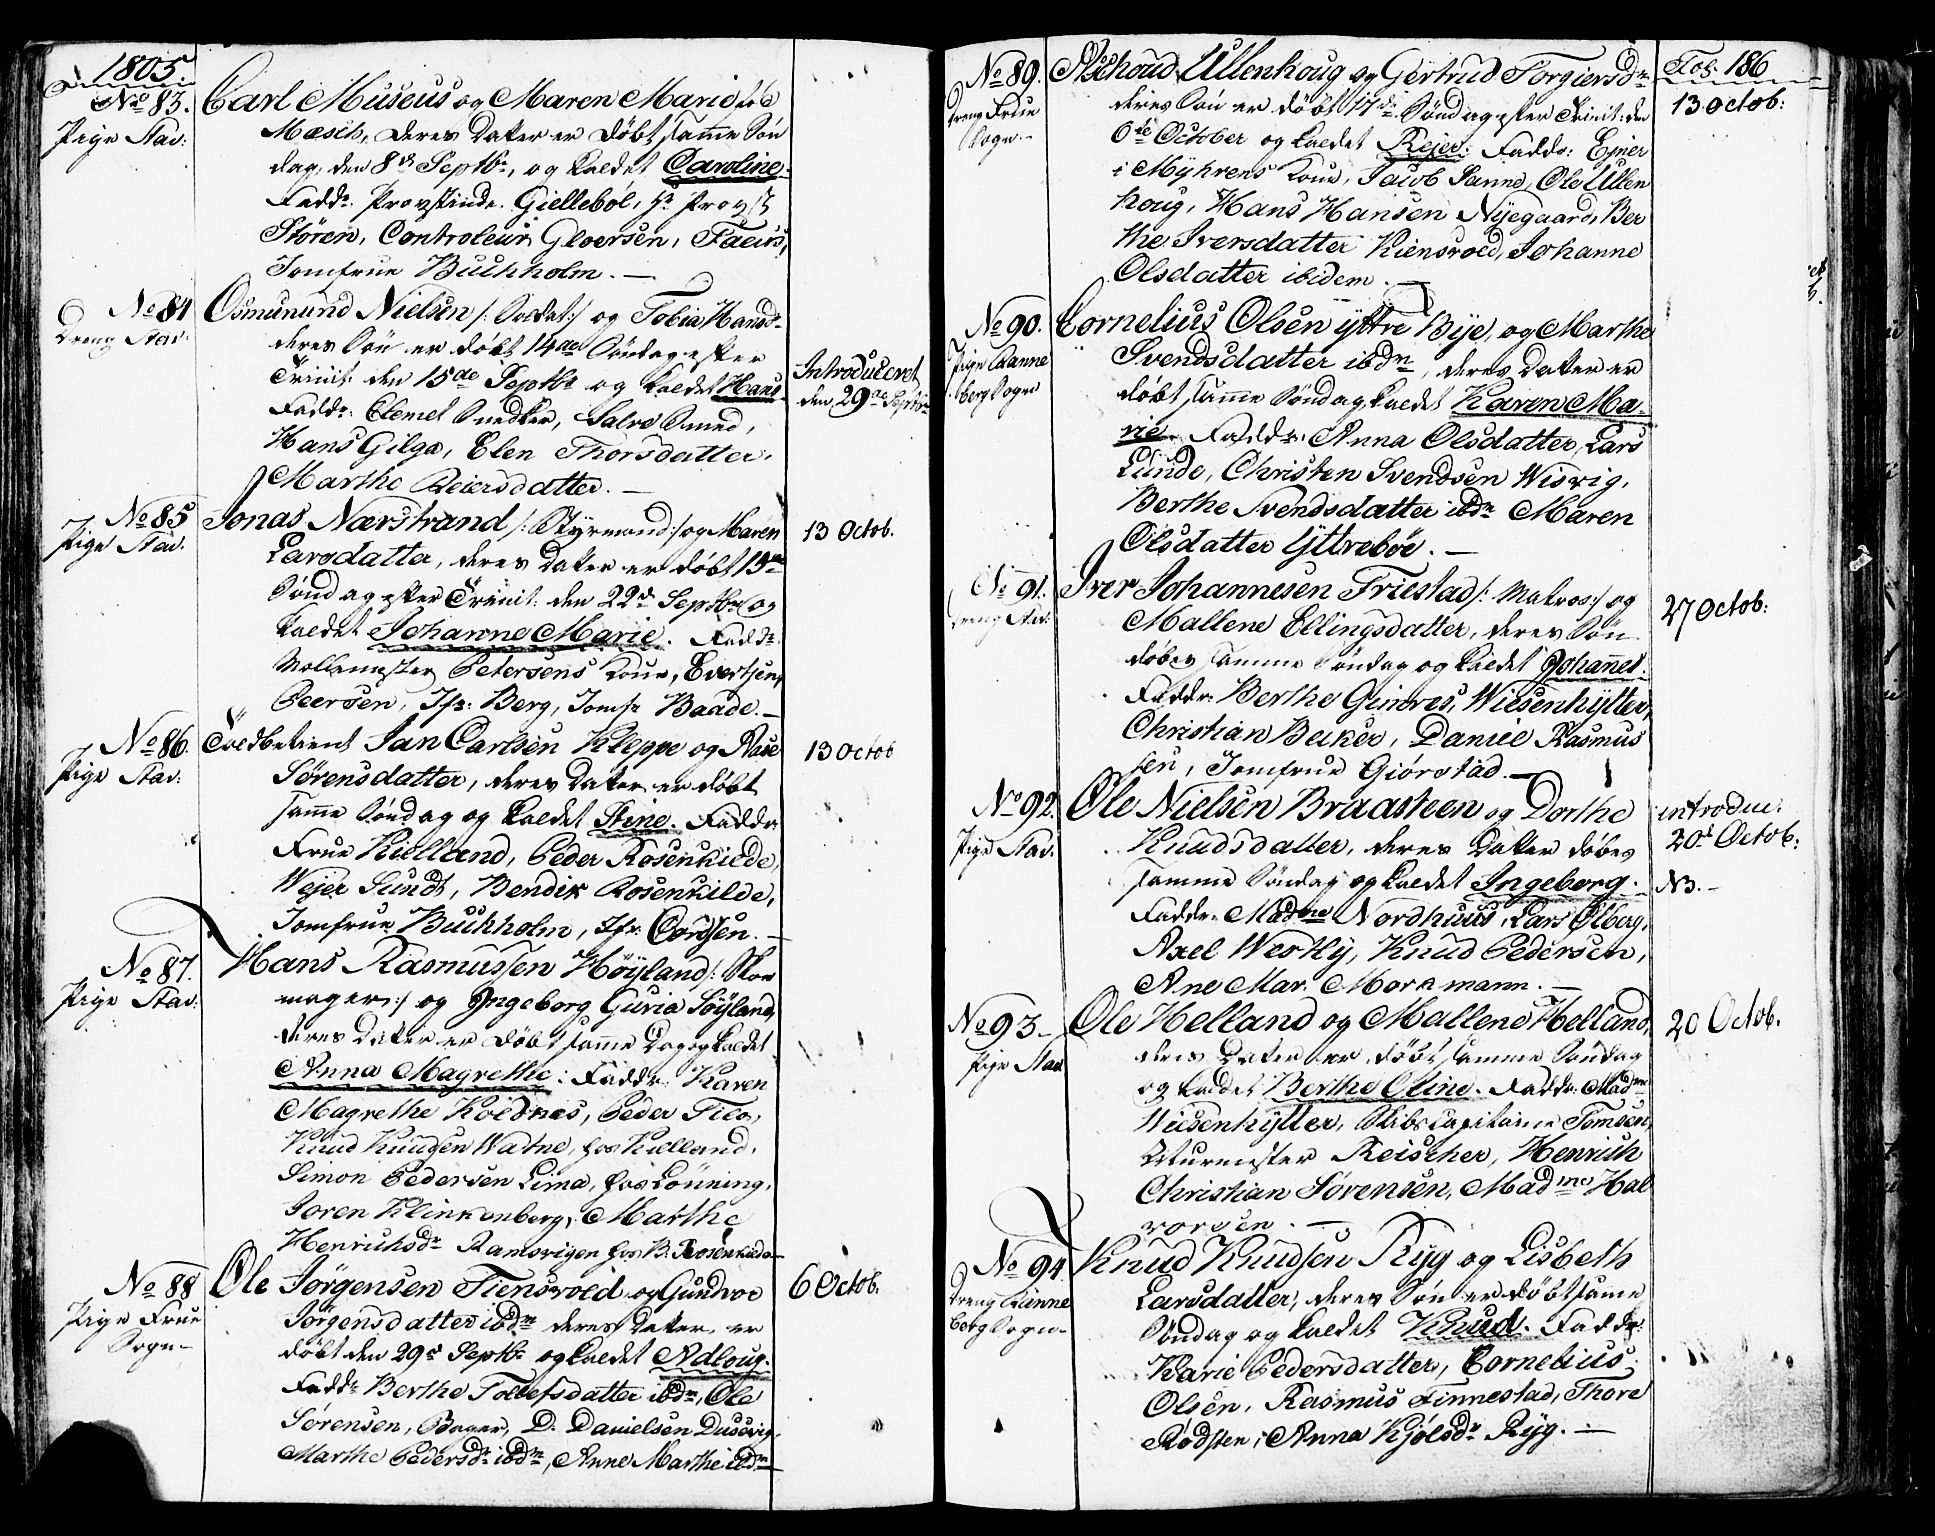 1805.
No 83.
Pige Stav:
Carl Museus og Maren Marie fød
Mæsch, deres Datter er døbt samme Søn
dag, den 8de Septbr, og kaldet Caroline.
Faddr. Provstinde Giellebøl, Hr Provst
Støren, Controleur Gloersen, Facius,
Jomfrue Buchholm. —
No 84
Dreng Stav:
Osmunund Nielsen /: Soldat :/ og Tobia Hansd.
deres Søn er døbt 14de Søndag efter
Trinit: den 15de Septbr og kaldet Hans
Faddr: Clemet Snedker, Salve Smed,
Hans Gilga, Elen Thorsdatter,
Marthe Reiersdatter. —
Introduceret
den 29de Septbr
No 85
Pige Stav:
Jonas Nærstrand /: Styrmand :/ og Maren
Larsdatter, deres Datter er døbt 15de
Søndag efter Trinit: den 22d Septbr og
kaldet Johanne Marie. Faddr:
Petersens Kone, Evertsen,
Peersen, Jfr: Berg, Jomfr Baade. —
13 Octob.
No 86.
Pige Stav:
Toldbetient Jan Carlsen Kleppe og
Sørensdatter, deres Datter er døbt
samme Søndag og kaldet Stine. Faddr
Frue Kielland, Peder Rosenkilde,
Wejer Sundt, Bendix Rosenkilde,
Jomfrue Buchholm, Jfr. Cordsen. —
13 Octob
No 87.
Pige Stav:
Hans Rasmussen Höyland /: Skoe
mager :/ og Ingeborg Guria Söyland,
deres Datter er døbt samme Dag og kaldet
Anna Magrethe: Faddr: Karen
Magrethe Koldnes, Peder Tico,
Knud Knudsen Watne, hos Kielland,
Simon Pedersen Lima, hos Lönning,
Soren Klinkenberg, Marthe
Henrichsdr Ramsvigen hos B: Rosenkilde —
No 88
Pige Frue
Sogn —
Ole Jörgensen Tiensvold og Gundvor
Jörgensdatter ibdm deres Datter er
døbt den 29d Septbr og kaldet Adloug.
Faddr Berthe Tollefsdatter ibdm, Ole
Sørensen, Bager, D. Danielsen Dusevig,
Marthe Pedersdr ibdm, Anne Marthe ibdm
6 Octob.
No 89.
Dreng Frue
Sogn —
Ullenhoug og Gertrud Torgiersdr
deres Søn er døbt 17d Søndag efter Trinit: den
6te October og kaldet Rejer: Faddr: Ejner
i Myhrens Kone, Jacob Sanne, Ole Ullen
houg, Hans Hansen Nyegaard, Ber
the Iversdatter Kiensvold, Johanne
Olsdatter ibidem. —
Fol: 186
13 Octob:
No 90.
Pige Ranne
berg Sogn
Cornelius Olsen yttre Bye, og Marthe
Svendsdatter ibdm, deres Datter er
døbt samme Søndag, kaldet Karen Ma-
rie. Faddr: Anna Olsdatter, Lars
Lunde, Christen Svendsen Wisvig,
Berthe Svendsdatter ibdm Maren
Olsdatter Yttreböe. —
No 91.
Dreng Stav:
Iver Johannesen Friestad /: Matros :/ og
Mallene Ellingsdatter, deres Søn
døbes samme Søndag og kaldet Johannes.
Faddr: Berthe Wiesenhytter,
Christian Becker, Daniel Rasmus
sen, Jomfrue Giörstad. —
27 Octob:
No 92.
Pige Stav:
Ole Nielsen Braasteen og Dorthe
Knudsdatter, deres Datter døbes
samme Søndag og kaldet Ingeborg.
Faddr: Madme Nordhuus, Lars Ølberg,
Axel Westly, Knud Pedersen,
Ane Mar. Morkmann. —
introduc:
20d Octob:
NB. —
No 93 —
Pige Stav
Ole Helland og Mallene Helland,
deres Datter er døbt samme Søndag
og kaldet Berthe Oline. Faddr: Madme
Wiesenhytter, Skibscapitaine Tomsen,
Reischer, Henrich
Christian Sørensen, Madme Hal
vorsen. —
20 Octob.
No 94
Dreng Ranne
berg Sogn —
Knud Knudsen Ryg og Lisbeth
Larsdatter, deres Søn er døbt samme
Søndag og kaldet Knud. Faddr:
Karie Pedersdatter, Cornelius
Olsen, Rasmus Finnestad, Thore
Rodsten, Anna Kjølsdr Ryg. —